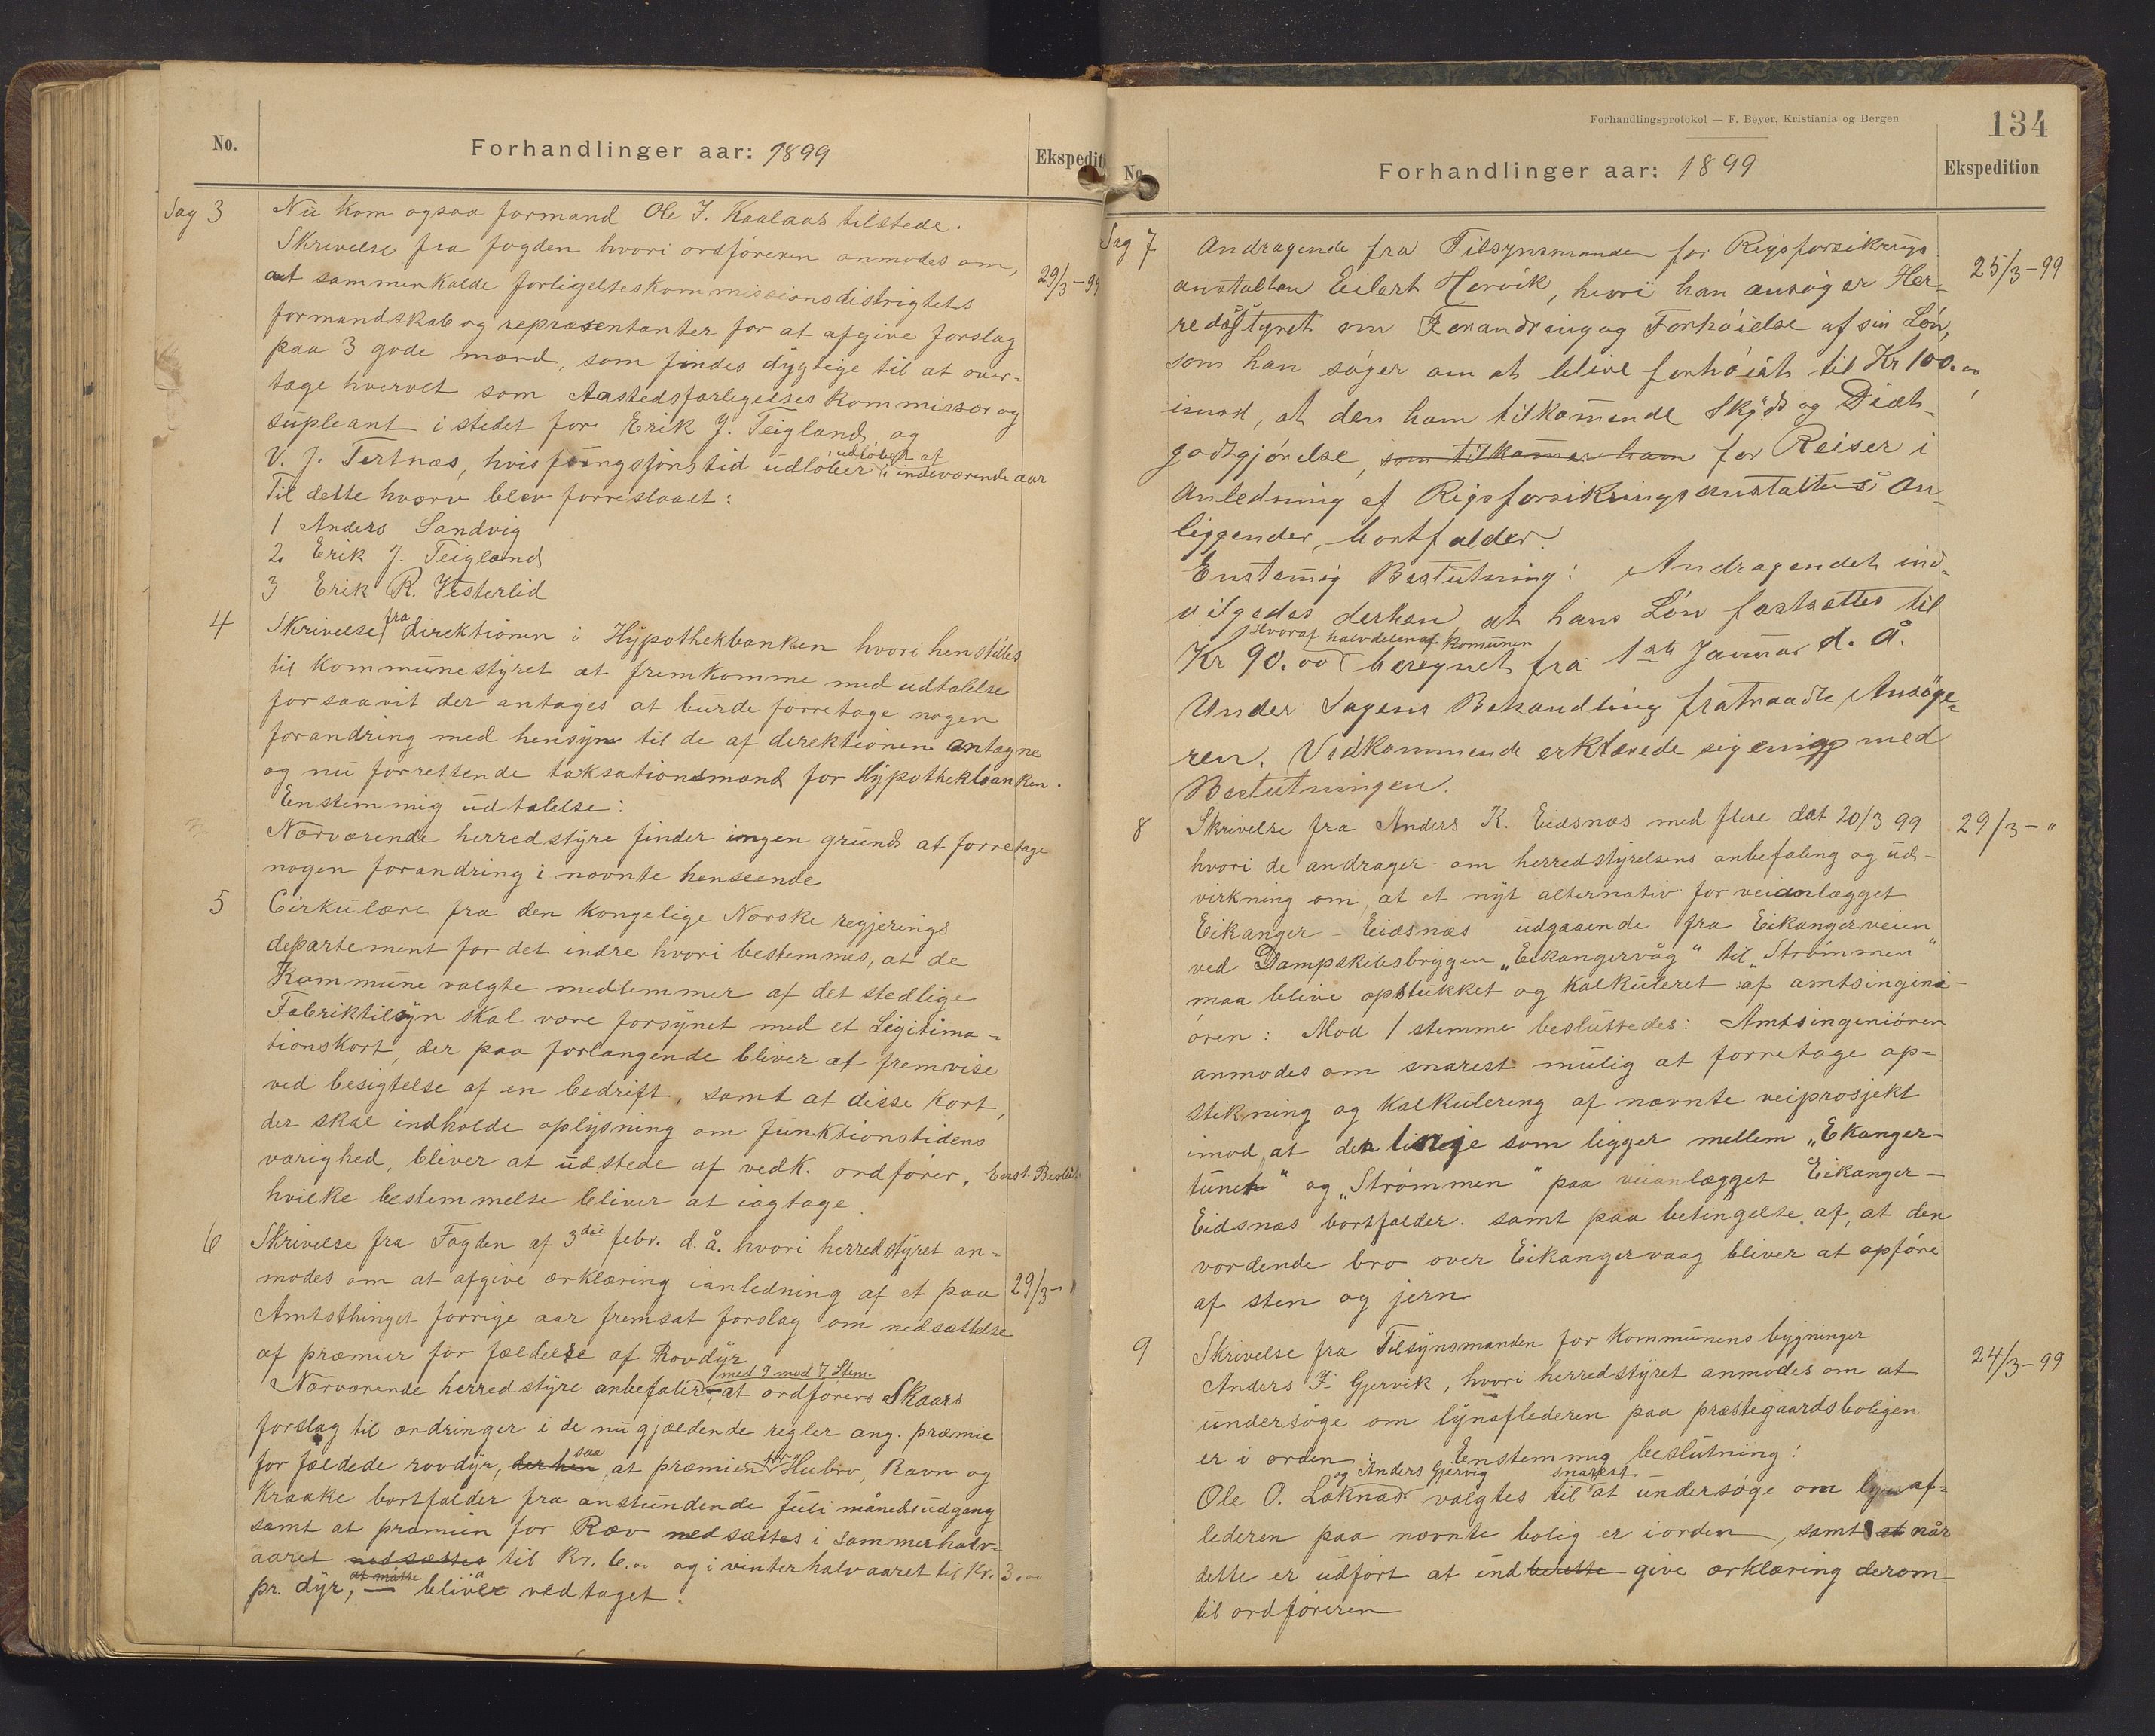 No.
Forhandlinger aar: 1899
Ekspedit
Sag 3
Nu kom ogsaa formand Ole J. Kaalaas tilstede.
Skrivelse fra fogden hvori ordføreren anmodes om,
at sammenkalde forligelseskommissionsdistrigtets
29/3-99
formandskab og repræsentanter for at afgive forslag
paa 3 gode mænd, som findes dygtige til at over-
tage hvervet som Aastedsforligelses kommissær og
supleant i stedet for Erik J. Teigland og
V. J. Tertnæs, hvis fungsjonstid udløber i udløbet af indeværende aar
Til dette hværv blev forreslaaet:
1 Anders Sandvig
2. Erik J. Teigland
3 Erik R. Vesterlid
4
Skrivelse fra Direktionen i Hypothekbanken hvori henstilles
til Kommunestyret at fremkomme med udtalelse
forsaavit der antages at burde forretage nogen
forandring med hensyn til de af direktionen antagne
og nu forrettende taksationsmænd for Hypothekbanken.
Enstemmig udtalelse:
Nærværende herredstyre finder ingen grund at forretage
nogen forandring i nævnte henseende
5
Cirkulære fra den Kongelige Norske regjerings
departement for det indre hvori bestemmes, at de
Kommune valgte medlemmer af det stedlige
Fabriktilsyn skal være forsynet med et Legitima-
tionskort, der paa forlangende bliver at fremvise
ved besigtelse af en bedrift, samt at disse Kort,
der skal indholde oplysning om funktionstidens
varighed, bliver at udstede af vedk. ordfører, Enst. Beslut:
hvilke bestemmelse bliver at iagtage.
6
Skrivelse fra Fogden af 3die febr. d.å. hvori herredstyret an-
modes om at afgive erklæring ianledning af et paa
29/3-"
Amtsthinget forrige aar fremsat forslag om nedsættelse
af præmier for fældelse af Rovdyr
Nærværende herredstyre anbefaler med 9 mod 7 Stem. at ordførers Skaars
forslag til ændringer i de nugjældende regler ang. præmie
for fældede rovdyr, derhen saa at præmien for Hubro, Ravn og
Kraake bortfalder fra anstundende Juli månedsudgang
samt at præmien for Ræv nedsættes i sommerhalv-
aaret nedsættes til Kr. 6.00 og i vinterhalvaaret til Kr. 3.00
pr. dyr, at måtte — blive vedtaget.
Forhandlingsprotokol — F. Beyer, Kristiania og Bergen
134
No.
Forhandlinger aar: 1899
Ekspedition
Sag 7
Andragende fra Tilsynsmanden for Rigsforsikrings-
25/3-99
anstalten Eilert Hervik, hvori han ansøger Her-
redsstyret om Forandring og Forhøielse af sin Løn,
som han søger om at blive forhøiet til Kr 100.00,
imod, at den ham tilkommende Skyds og Diæt-
godtgjørelse, som tilkommer ham for Reiser i
Anledning af Rigsforsikringsanstaltens An-
liggender, bortfalder.
Enstemig Beslutning: Andragendet ind-
vilgedes derhen, at hans Løn fastsættes til
Kr 90.00 hvoraf halvdelen af Komunen beregnet fra 1ste Januar d. Å.
Under Sagens Behandling fratraadte Ansøge-
ren. Vedkommende erklærede sig enig med
Beslutningen.
8
Skrivelse fra Anders K. Eidsnæs med flere dat 20/3 99
29/3-"
hvori de andrager om herredstyrelsens anbefaling og ud-
virkning om, at et nyt alternativ for veianlægget
Eikanger - Eidsnæs udgaaende fra Eikangerveien
ved Dampskibsbryggen „Eikangervåg" til „Strømmen"
maa blive opstukket og Kalkuleret af amtsingeni-
øren: Mod 1 stemme besluttedes: Amtsingeniøren
anmodes om snarest mulig at forretage op-
stikning og Kalkulering af nævnte veiprosjekt
imod, at den linje som ligger mellem „Ekanger-
tunet" og „Strømmen" paa veianlægget Eikanger-
Eidsnæs bortfalder. samt paa betingelse af, at den
vordende bro over Eikangervaag bliver at opføre
af sten og jern
9
Skrivelse fra Tilsynsmanden for Kommunens bygninger
24/3-99
Anders J. Gjervik, hvori herredstyret anmodes om at
undersøge om lynaflederen paa præstegaardsboligen
er i orden: Enstemmig beslutning:
Ole O. Løknæs og Anders Gjervig valgtes til snarest at undersøge om lynaf-
lederen paa nævnte bolig er iorden, samt at når
dette er udført at indberette give erklæring derom
til ordføreren